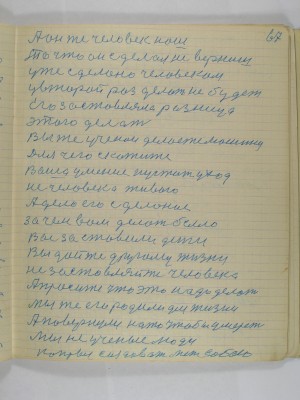 67
А он же человек наш
То что он сделал не вернеш
уже сделано человеком
увторой раз делат не будет
Его заставляла разница
этого делат
Вы же ученои делаете машину
для чего скажите
Ваша умение пустит уход
не человека живого
А дело его сделоное
зачем вам делат было
Вас заставили дети
Вы дайте другому жизни
не заставляйте человека
Апросите что это надо делат
Мы же его родили для жизни
А повернули на то чтобы умерет
Мы не ученые люди
собою